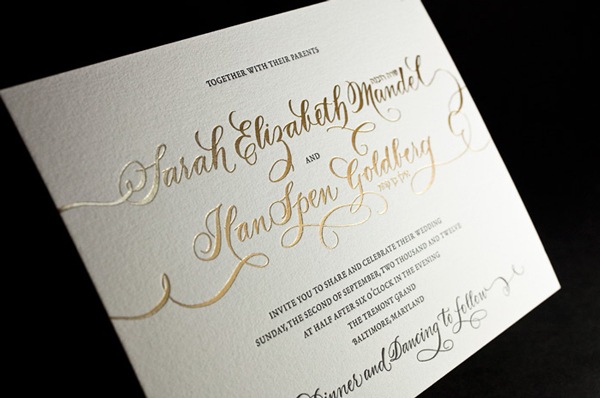 TOGETHER WITH THEIR PARENTS
Sarah Elizabeth Mandel
AND
Ilan Spen Goldberg
INVITE YOU TO SHARE AND CELEBRATE THEIR WEDDING
SUNDAY, THE SECOND OF SEPTEMBER, TWO THOUSAND AND TWELVE
AT HALF AFTER SIX O'CLOCK IN THE EVENING
THE TREMONT GRAND
BALTIMORE, MARYLAND
Dinner and Dancing to follow